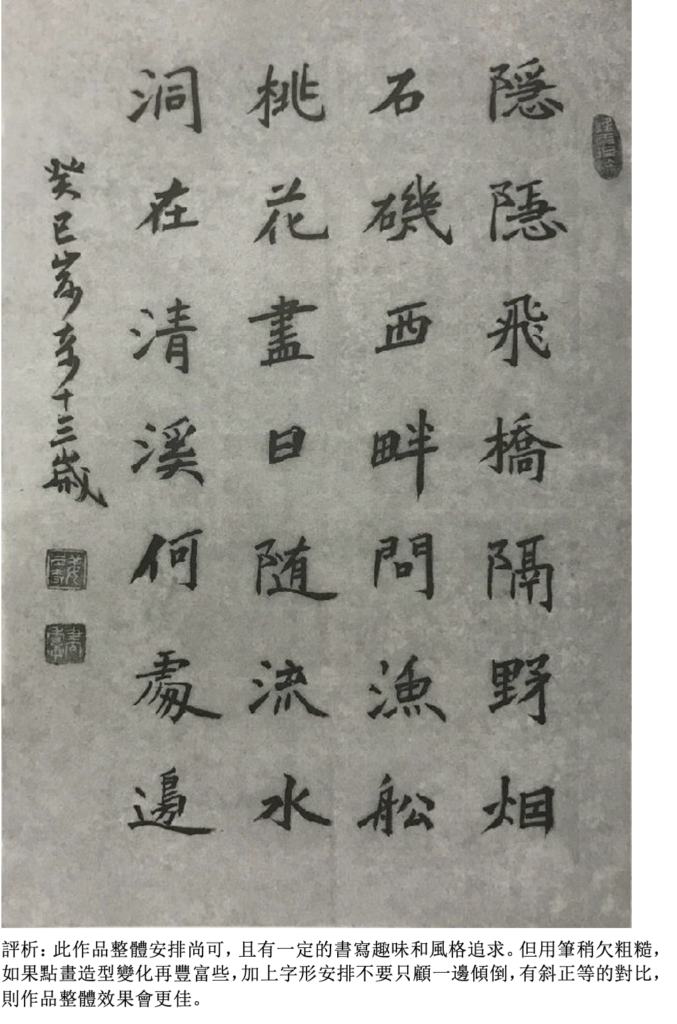 隱隱飛橋隔野烟
石磯西畔問漁舩
桃花盡日随流水
洞在清溪何處邊
癸巳岁十三歲
評析：此作品整體安排尚可，且有一定的書寫趣味和風格追求。但用筆稍欠粗糙，
如果點畫造型變化再豐富些，加上字形安排不要只顧一邊傾倒，有斜正等的對比，
則作品整體效果會更佳。